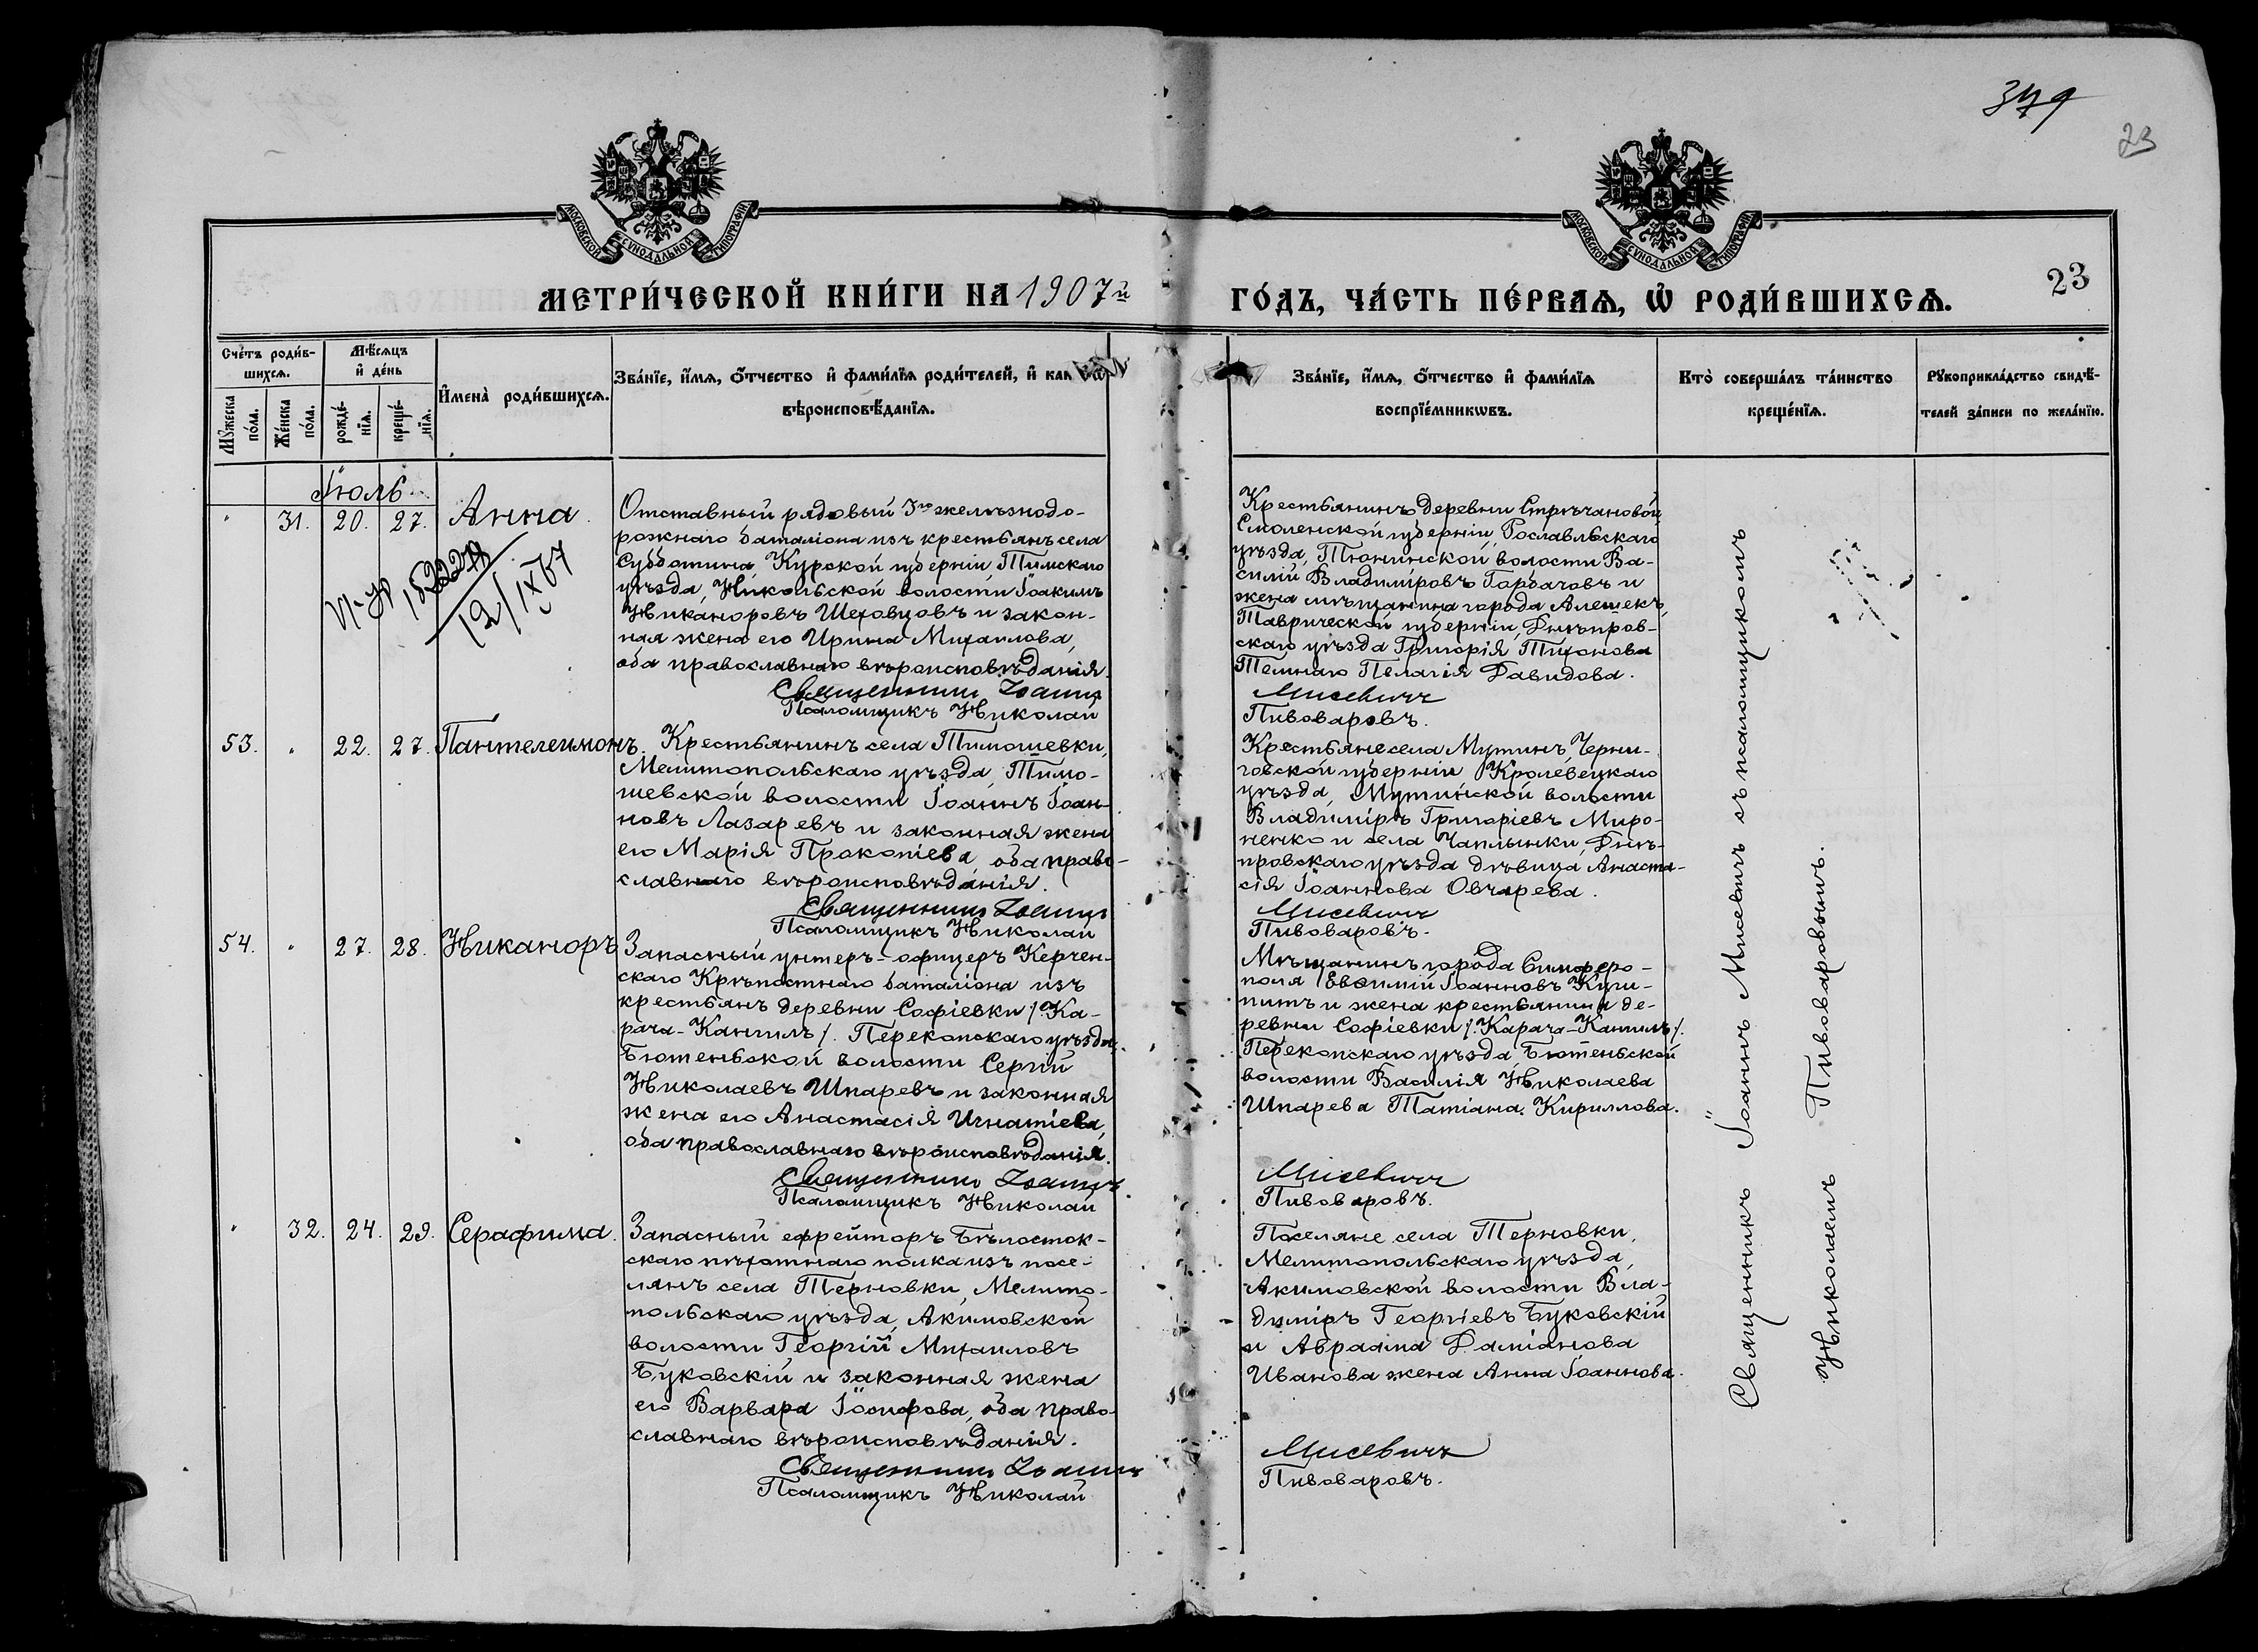 379
23
МОСКОВСКОЙ СѴНОДАЛЬНОЙ ТИПОГРАФІИ
МОСКОВСКОЙ СѴНОДАЛЬНОЙ ТИПОГРАФІИ
МЕТРИ́ЧЕСКОЙ КНИ́ГИ НА 1907й
ГО́ДЪ, ЧА́СТЬ ПЕ́РВАѦ, Ѿ РОДИ́ВШИХСѦ.
23
Сче́тъ роди́в-
шихсѧ.
Мѣ́сѧцъ
и҆ де́нь
И҆мена̀ роди́вшихсѧ.
Зва́нїе, и҆́мѧ, ѻ҆́тчество и҆ фами́лїѧ роди́телей, и҆
вѣроисповѣ́данїѧ.
Мꙋ́жеска
по́ла.
Же́нска
по́ла.
рожде́-
нїѧ.
креще́-
нїѧ.
Зва́нїе, и҆́мѧ, ѻ҆́тчество и҆ фами́лїѧ
воспрїе́мникѡвъ.
Кто̀ соверша́лъ та́инство
креще́нїѧ.
Рꙋкоприкла́дство свидѣ́-
телей за́писи по жела́нїю.
Іюль
" 31. 20. 27. Анна.
12/IX 67
Отставный рядовый 3го желѣзнодо-
рожнаго баталіона изъ крестьянъ села
Субботина, Курской губерніи, Тимскаго
уѣзда, Никольской волости Іоакимъ
Никаноровъ Шеховцовъ и закон-
ная жена его Ирина Михаилова,
оба православнаго вѣроисповѣданія.
Священникъ Іоаннъ
Псаломщикъ Николай
Крестьянинъ деревни Стрѣчановой,
Смоленской губерніи, Рославльскаго
уѣзда, Тюнинской волости Ва-
силій Владиміровъ Горбачовъ и
жена мѣщанина города Алешекъ,
Таврической губерніи, Днѣпров-
скаго уѣзда Григорія Тихонова
Темнаго Пелагія Давидова.
Мисевичъ
Пивоваровъ.
53. " 22. 27. Пантелеимонъ.
Крестьянинъ села Тимошевки,
Мелитопольскаго уѣзда, Тимо-
шевской волости Іоаннъ Іоан-
новъ Лазаревъ и законная жена
его Марія Прокопіева, оба право-
славнаго вѣроисповѣданія.
Священникъ Іоаннъ
Псаломщикъ Николай
Крестьяне села Мутинъ, Черни-
говской губерніи Кролевецкаго
уѣзда, Мутинской волости
Владиміръ Григоріевъ Миро-
ненко и села Чаплынки, Днѣ-
провскаго уѣзда дѣвица Анаста-
сія Іоаннова Овчарева.
Мисевичъ
Пивоваровъ.
54. " 27. 28. Никаноръ
Запасный унтеръ-офицеръ Керчен-
скаго Крѣпостнаго баталіона изъ
крестьянъ деревни Софіевки /:Ка-
рача-Кангилъ/. Перекопскаго уѣзда,
Бютеньской волости Сергій
Николаевъ Шпаревъ и законная
жена его Анастасія Игнатіева,
оба православнаго вѣроисповѣданія.
Священникъ Іоаннъ
Псаломщикъ Николай
Мѣщанинъ города Симферо-
поля Евѳимій Іоанновъ
и жена крестьянина де-
ревни Софіевки /:Карача-Кангилъ/.
Перекопскаго уѣзда, Бютеньской
волости Василія Николаева
Шпарева Татіана Кириллова.
Мисевичъ
Пивоваровъ.
" 32. 24. 29. Серафима.
Запасный ефрейторъ Бѣлосток-
скаго пѣхотнаго полка изъ посе-
лянъ села Терновки, Мелито-
польскаго уѣзда, Акимовской
волости Георгій Михаиловъ
Буковскій и законная жена
его Варвара Іосифова, оба право-
славнаго вѣроисповѣданія.
Священникъ Іоаннъ
Псаломщикъ Николай
Поселяне села Терновки,
Мелитопольскаго уѣзда,
Акимовской волости Вла-
диміръ Георгіевъ Буковскій
и Авраама Даміанова
Иванова жена Анна Іоаннова.
Мисевичъ
Пивоваровъ.
Священникъ Іоаннъ Мисевичъ съ псаломщикомъ
Николаемъ Пивоваровымъ.